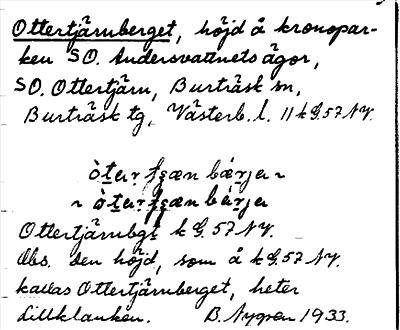 Ottertjärnberget, höjd å kronopar-
ken SO. Andersvattnets ägor,
SO. Ottertjärn, Burträsk sn,
Burträsk tg, Västerb. l. 11 k G.57 NV.
Ottertjärnbgt k G. 57 NV.
Obs. den höjd, som å k G.57 NV.
kallas Ottertjärnberget, heter
Lillklanken. B. Nygren 1933.